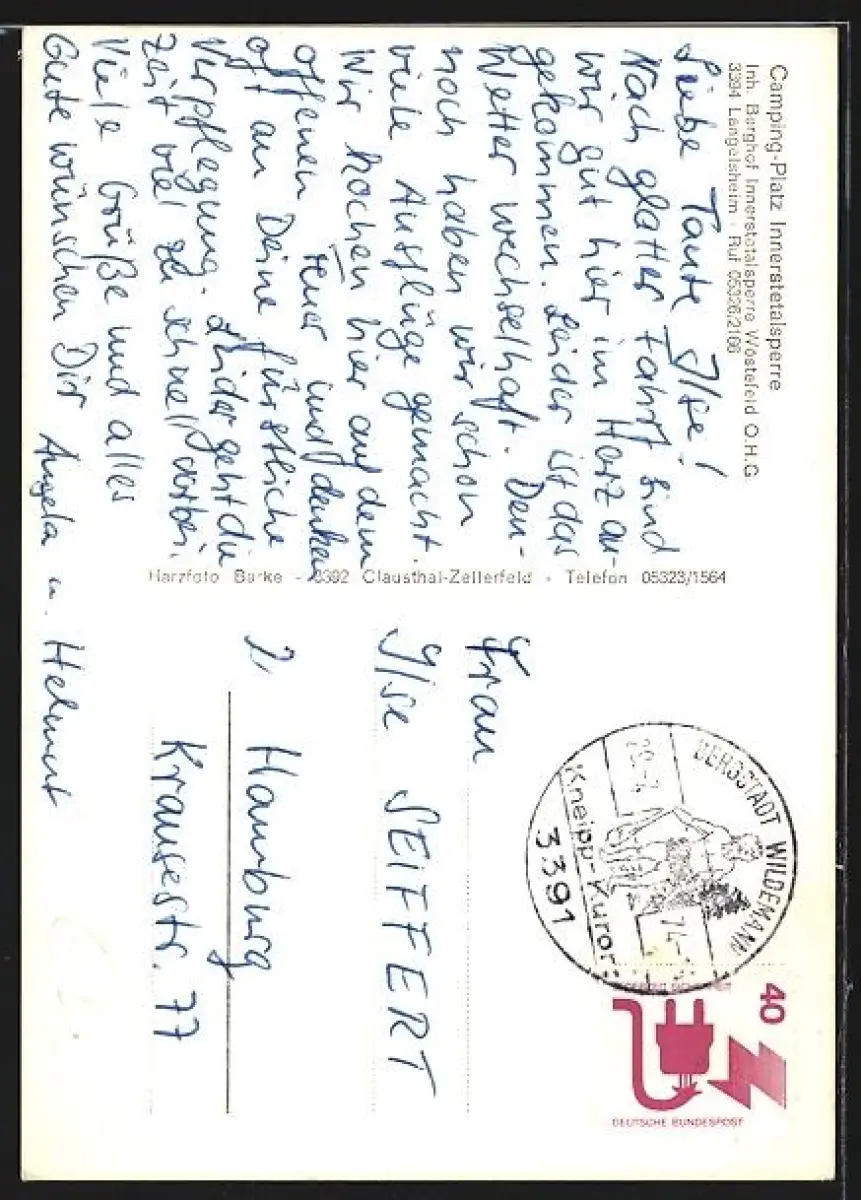 Camping-Platz Innerstetalsperre
Inh. Berghof Innerstetalsperre Wöstefeld O.H.G
3394 Langelsheim · Ruf 05326/2166
Liebe Tante Ilse!
Nach glatter Fahrt sind
wir gut hier im Harz an-
gekommen. Leider ist das
Wetter wechselhaft. Den-
noch haben wir schon
viele Ausflüge gemacht.
Wir kochen hier auf dem
offenen Feuer und denken
oft an Deine fürstliche
Verpflegung. Leider geht die
Zeit viel zu schnell vorbei.
Viele Grüße und alles
Gute wünschen Dir Angela u. Helmut
Harzfoto Barke - 3392 Clausthal-Zellerfeld · Telefon 05323/1564
Frau
Ilse SEIFFERT
2 Hamburg
Krausestr. 77
BERGSTADT WILDEMANN
Kneipp-Kurort
3391
40
DEUTSCHE BUNDESPOST